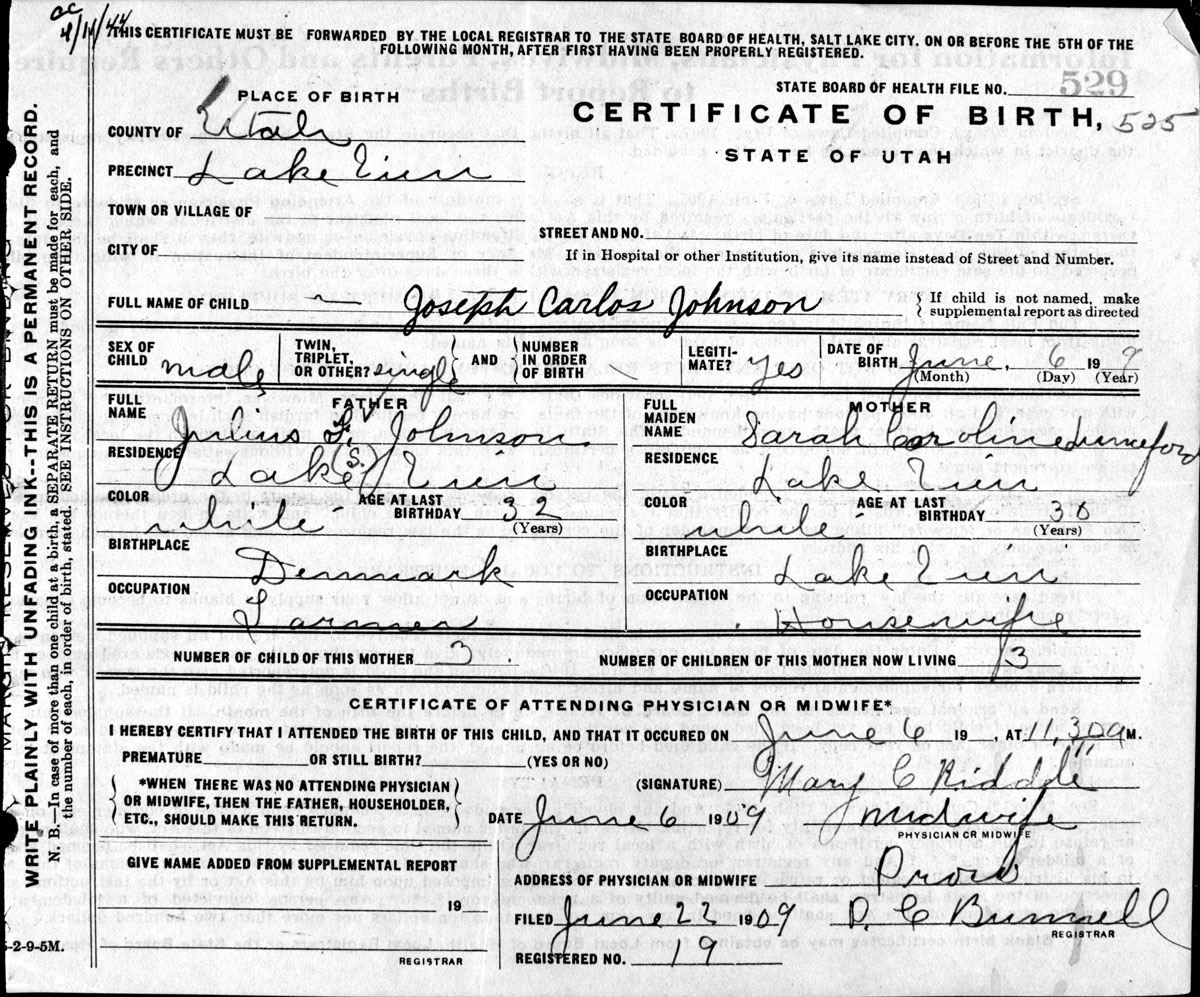 4/11/44
THIS CERTIFICATE MUST BE FORWARDED BY THE LOCAL REGISTRAR TO THE STATE BOARD OF HEALTH, SALT LAKE CITY. ON OR BEFORE THE 5TH OF THE
FOLLOWING MONTH, AFTER FIRST HAVING BEEN PROPERLY REGISTERED.
STATE BOARD OF HEALTH FILE NO. 529
PLACE OF BIRTH
CERTIFICATE OF BIRTH, 525
COUNTY OF Utah
STATE OF UTAH
PRECINCT Lake View
TOWN OR VILLAGE OF
STREET AND NO.
CITY OF
If in Hospital or other Institution, give its name instead of Street and Number.
FULL NAME OF CHILD Joseph Carlos Johnson
If child is not named, make
supplemental report as directed
SEX OF CHILD male
TWIN, TRIPLET, OR OTHER? single AND NUMBER IN ORDER OF BIRTH
LEGITI-MATE? yes
DATE OF BIRTH June, 6 199
(Month) (Day) (Year)
FATHER
FULL NAME Julius F. Johnson
RESIDENCE Lake S. View
COLOR white
AGE AT LAST BIRTHDAY 32
(Years)
BIRTHPLACE Denmark
OCCUPATION Farmer
MOTHER
FULL MAIDEN NAME Sarah Caroline
RESIDENCE Lake View
COLOR white
AGE AT LAST BIRTHDAY 38
(Years)
BIRTHPLACE Lake View
OCCUPATION Housewife
NUMBER OF CHILD OF THIS MOTHER 3
NUMBER OF CHILDREN OF THIS MOTHER NOW LIVING 3
CERTIFICATE OF ATTENDING PHYSICIAN OR MIDWIFE*
I HEREBY CERTIFY THAT I ATTENDED THE BIRTH OF THIS CHILD, AND THAT IT OCCURED ON June 6 19 , AT 11,30a M.
PREMATURE OR STILL BIRTH? (YES OR NO)
(SIGNATURE) Mary C Riddle
*WHEN THERE WAS NO ATTENDING PHYSICIAN
OR MIDWIFE, THEN THE FATHER, HOUSEHOLDER,
ETC., SHOULD MAKE THIS RETURN.
DATE June 6 1909 Midwife
PHYSICIAN OR MIDWIFE
GIVE NAME ADDED FROM SUPPLEMENTAL REPORT
ADDRESS OF PHYSICIAN OR MIDWIFE Provo
19
FILED June 22 1909
REGISTRAR
REGISTERED NO. 19
REGISTRAR
5-2-9-5M.
MARGIN RESERVED FOR BINDING
WRITE PLAINLY WITH UNFADING INK--THIS IS A PERMANENT RECORD.
N. B.—In case of more than one child at a birth, a SEPARATE RETURN must be made for each, and
the number of each, in order of birth, stated. SEE INSTRUCTIONS ON OTHER SIDE.